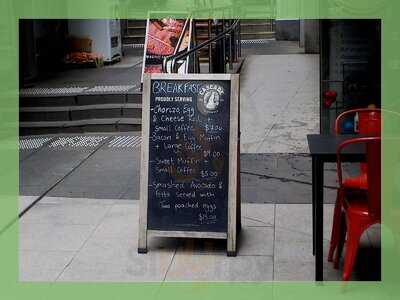 BREAKFAST
PROUDLY SERVING
- Chorizo, Egg
& Cheese Roll +
Small Coffee $7.00
- Bacon & Egg Muffin
+ Large Coffee
$9.00
- Sweet Muffin +
Small Coffee
$5.00
- Smashed Avocado &
Fetta Served with
Two poached eggs
$15.00